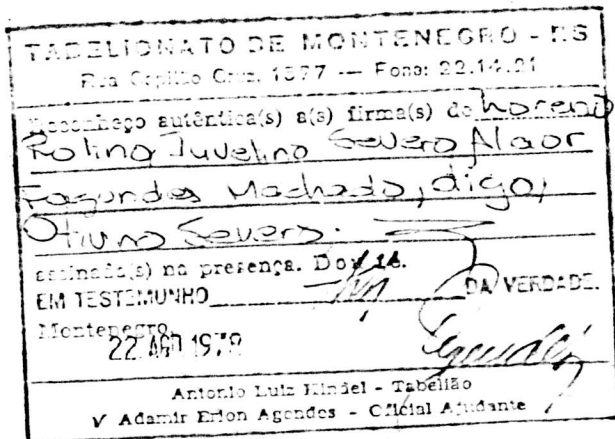 TABELIONATO DE MONTENEGRO - RS
Rua Capitão Cruz, 1577 — Fone: 22.14.21
Reconheço autêntica(s) a(s) firma(s) de Loreno
Rolino Juvelino Severo Alaor
Fagundes Machado, digo,
Otivno Severo.
assinada(s) na presença. Dou fé.
EM TESTEMUNHO DA VERDADE.
Montenegro,
22 1978
Antonio Luiz Kindel - Tabelião
V Adamir Erion Agendes - Oficial Ajudante